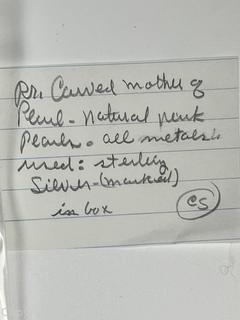 Pr. Carved mother of
Pearl - natural pink
Pearls - all metals
used: sterling
Silver - (marked)
in box
CS